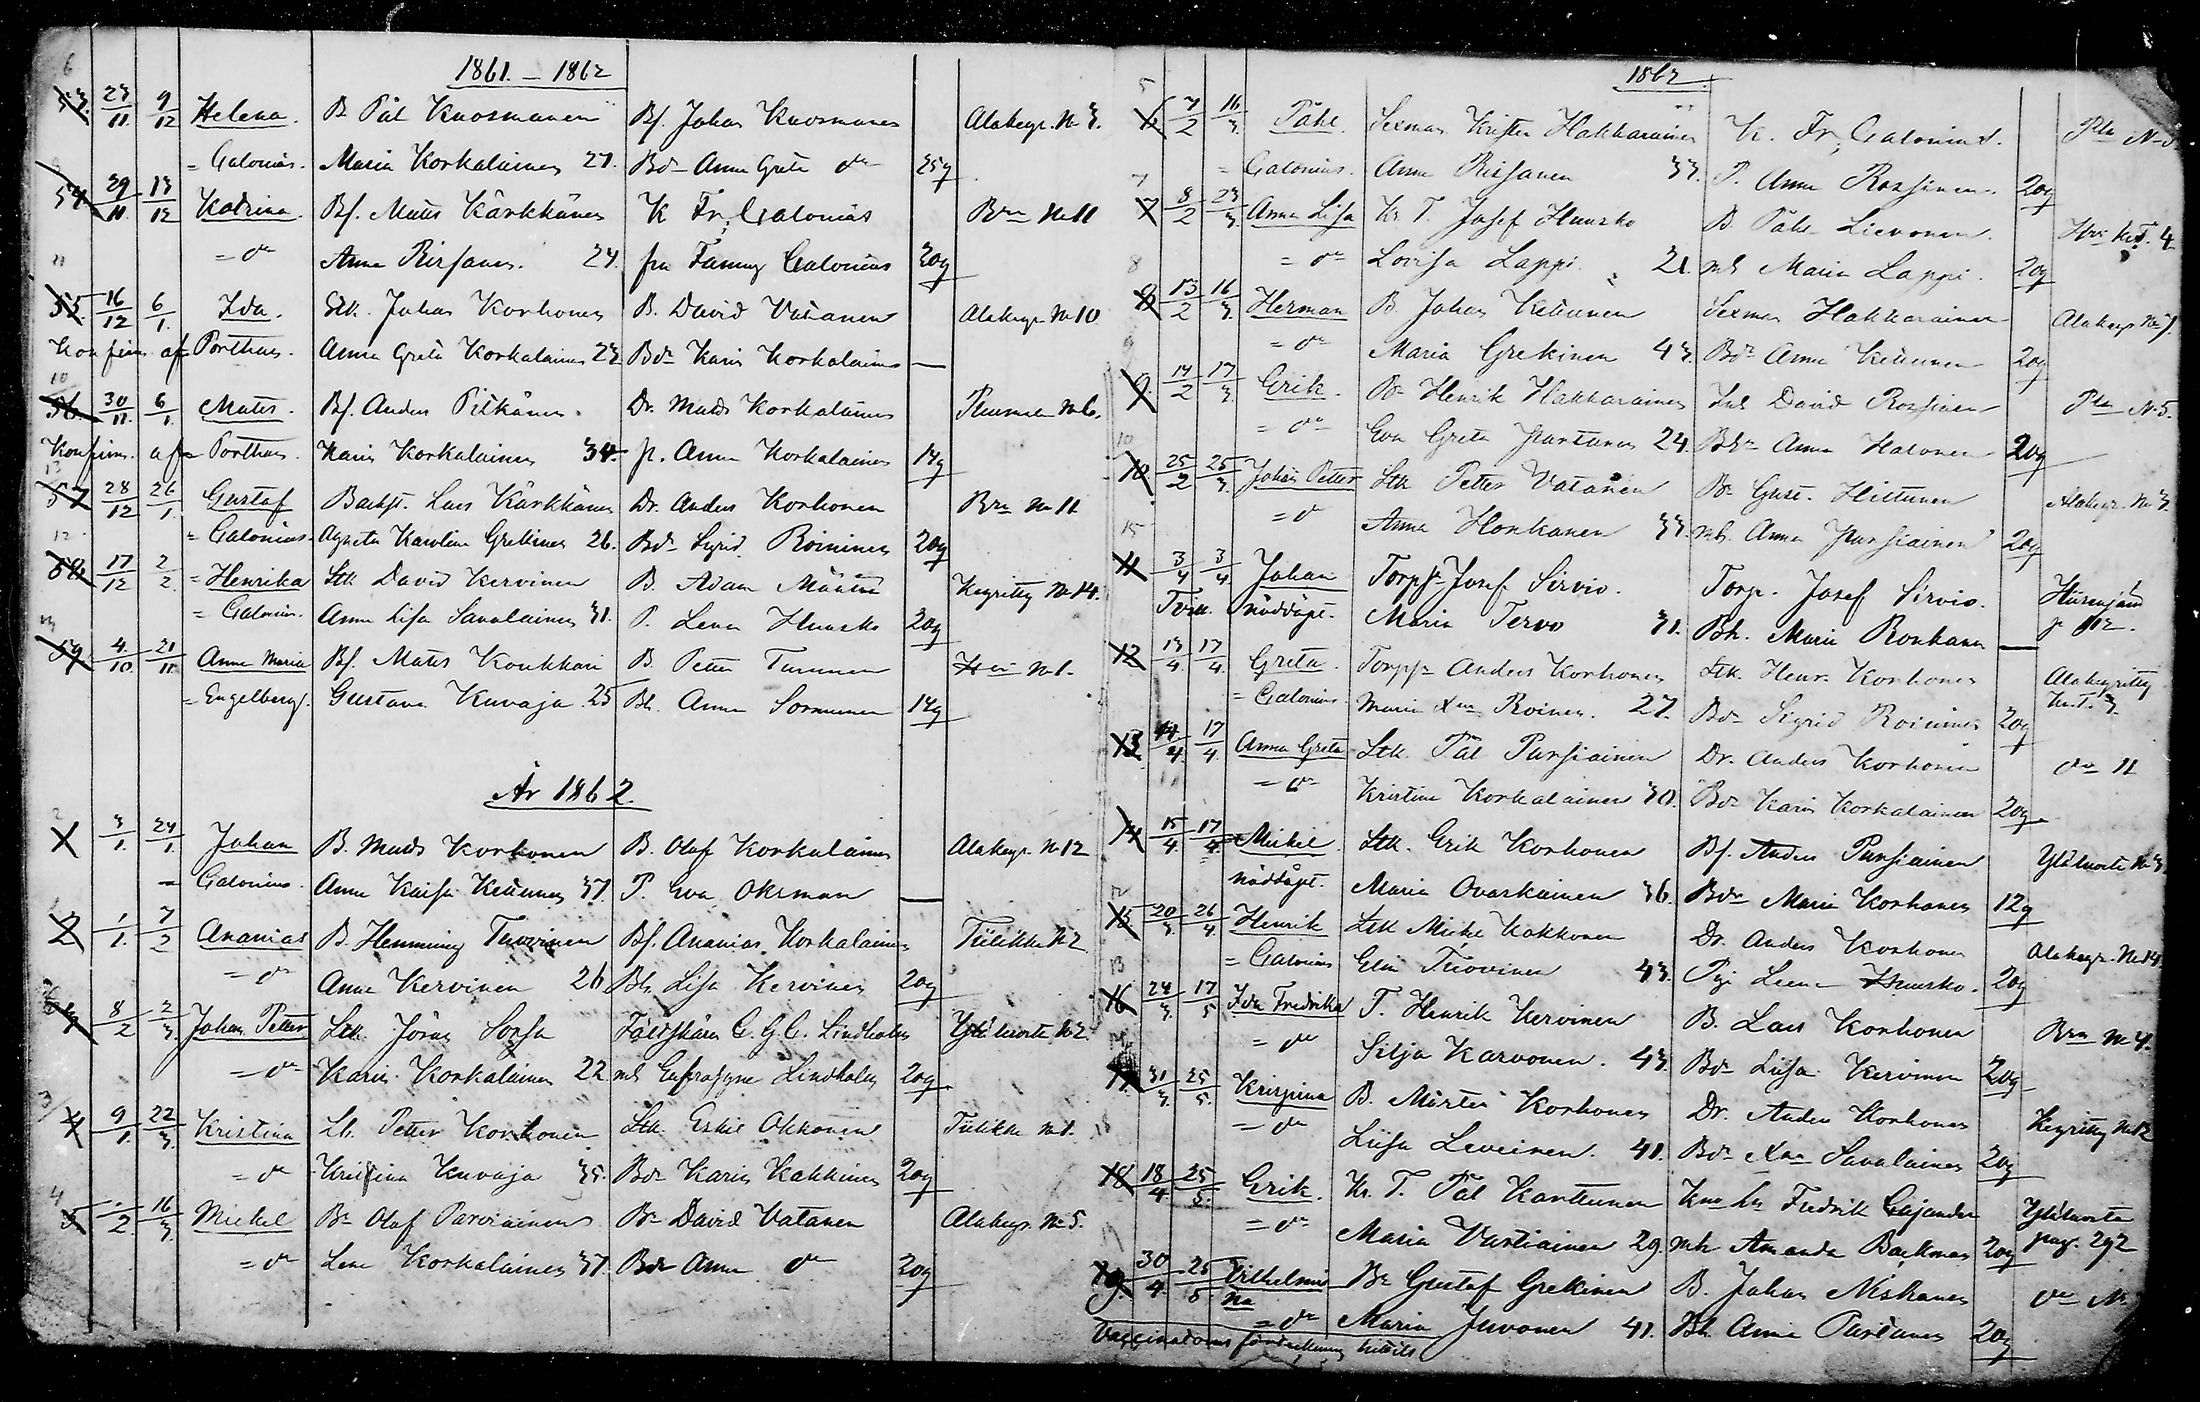 1861. – 1862
6
53. 23/11 9/12 Helena. B Pål Kuosmanen Bf. Johan Kuosmanen Alakeyr. No 3.
= Calonius. Maria Korkalainen 27. Bdr Anna Greta dr 25 9
54 29/11 13/12 Katrina. Bf. Mats Kärkkänen K Fr. Calonius Brn No 11
= dr Anna Risanen. 24. fru Fanny Calonius 20 9
11
55. 16/12 6/1. Ida. Stk. Johan Korhonen B. David Vatanen Alakeyr No 10
Konfirm. af Porthan. Anna Greta Korkalainen 23 Bdr Karin Korkalainen —
10
56. 30/11. 6/1. Mats. Bf. Anders Pitkänen. Dr. Mads Korkalainen No 6.
Konfirm. af Porthan. Karin Korkalainen 34. p. Anna Korkalainen 14 9
13
57 28/12 26/1. Gustaf Lars Kärkkänen Dr. Anders Korhonen Brn No 11
= Calonius. Agneta Karolina Grekinen 26. Bdr Sigrid Roininen 20 9
12
58 17/12 2/2. = Henrika Stk David Kervinen B. Adam Määttä Keyritty No 14.
= Calonius. Anna Lisa Savolainen 31. P. Lena Huusko 20 9
59 4/10. 21/11. Anna Maria Bf. Mats Koukkari B. Petter Turunen No 1.
= Engelberg. Gustava Kuvaja 25 Bh. Anna Sormunen 14 9
År 1862.
2
1 3/1. 24/1. Johan B. Mads Korhonen B. Olof Korkalainen Alakeyr No 12
= Calonius. Anna Kaisa Keinänen 37. P. Eva Okrman —
2 1/1. 7/2 Ananias B. Hemming Tuovinen Bf. Ananias Korkalainen Tiilikka No 2
= dr Anna Kervinen 26 Bh Lisa Kervinen 20 9
3 8/2 2/3. Johan Petter Stk. Jöran Sopfa Fältskären C. G. C. Lindholm No 2.
= dr Karin Korkalainen 22 mh Eufrosyne Lindholm 20 9
3
4 9/1. 22/3. Kristina Lt. Petter Korhonen Stk. Eskil Okkonen Tiilikka No 1.
= dr Kristina Kuvaja 35. Bdr Karin Kakkinen 20 9
4
5 2. 16/3. Mickel Br Olof Parviainen Br David Vatanen Alakeyr. No 5.
= dr Lena Korkalainen 37. Bdr Anna dr 20 9
1862.
5
6 7/2 16/3. Påhl. Sexman Krister Hakkarainen K. Fr. Calonius. Pla No 5
= Calonius. Anna Risanen 33. P. Anna Rossinen. 20 9
7
7 8/2 23/3. Anna Lisa Kr. T. Josef Huusko B. Påhl Lievonen. 4.
= dr Lovisa Lappi. 21. mh Maria Lappi. 20 9
8
8 13/2 16/3. Herman B. Johan Keinänen Sexman Hakkarainen Alakeyr No 7.
= dr Maria Grekinen 43. Bdr Anna Keinänen 20 9
9
9. 14/2 17/3. Erik. Br Henrik Hakkarainen Inh David Rossinen Pla No 5.
= dr Eva Greta Partanen 24. Bdr Anna Halonen 20 9
10
10 25/2 25/3. Johan Petter Stk Petter Vatanen Br Gust. Hiltunen Alakeyr. No 3.
= dr Anna Honkanen 33. mh. Anna Pursiainen 20 9
15
11 3/4 3/4 Johan Torp. Josef Sirvio. Torp. Josef Sirvio. Hiirenjärvi
Tvill. nöddöpt. Maria Tervo 31. Bh. Maria Ronkanen — p 812.
12 13/4. 17/4. Greta. Torp Anders Korhonen Stk. Henr. Korhonen Alakeyritty
= Calonius Maria Xna Roinen. 27. Bdr Sigrid Roininen 20 9 No 3.
13 14/4. 17/4. Anna Greta Stk. Pål Pursiainen Dr. Anders Korhonen dr 11
= dr Kristina Korkalainen 30. Bdr Karin Korkalainen 20 9
14 15/4 17/4. Mickel Stk. Erik Korhonen Bf. Anders Pursiainen No 3
nöddöpt. Maria Ovaskainen 36. Bdr Maria Korhonen 12 9
15 20/3. 26/4. Henrik Stk Mickel Kokkonen Dr. Anders Korhonen Alakeyr. No 14.
= Calonius Elin Tuovinen 43. Pig Leena Huusko. 20 9
13
16 24/3. 17/5 Ida Fredrika T. Henrik Kervinen B. Lars Korhonen Brn No 4.
= dr Silja Karvonen. 43. Bdr Liisa Kervinen 20 9
17 31/3. 25/5. Krispina B. Mårten Korhonen Dr. Anders Korhonen Keyritty No 12
= dr Liisa Leveinen. 41. Bdr Xna Savolainen 20 9
18 18/4 25/5. Erik. Kr. T. Pål Kanttunen Fredrik Cajander
= dr Maria Vartiainen 29. mh Amanda Backman 20 9 pag. 292
19. 30/4. 25/5. Vilhelmina Br Gustaf Grekinen B. Johan Niskanen dr No
= dr Maria Juvonen 41. Bh Anna Partanen 20 9
Vaccinatorns förteckning hittils